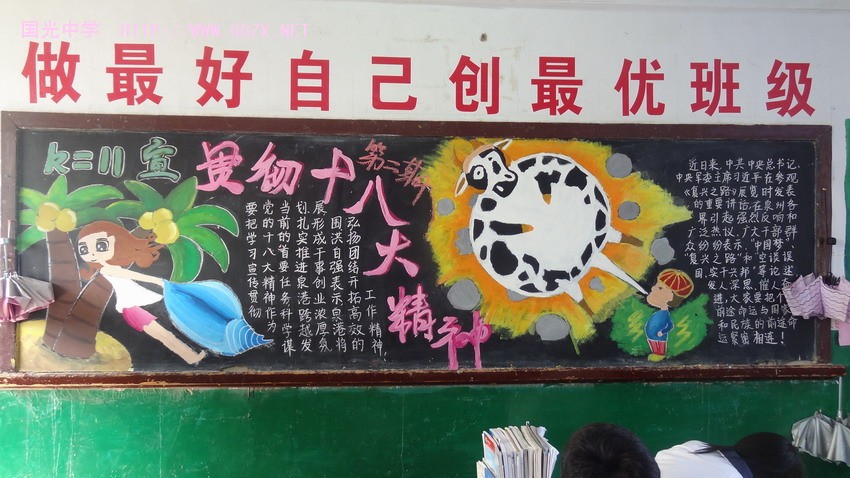 国光中学
做最好自己创最优班级
k二11宣
贯彻十八大精神
第二期
要把学习宣传贯彻
党的十八大精神作为
当前的首要任务科学谋
划扎实推进泉港跨越发
展形成干事创业浓厚氛
围决自强表示泉港将
弘扬团结开拓高效的
工作精神,
近日来,中共中央总书记、
中央军委主席习近平在参观
《复兴之路》展览时发表
的重要讲话,在泉州各
界引起强烈反响和
广泛热议,广大干部群
众纷纷表示,“中国梦”、
“复兴之路”和“空谈误
国,实干兴邦”等论述
发人深思、催人奋
进,大家要把个
前途命运与国家
和民族的前途命
运紧密相连！